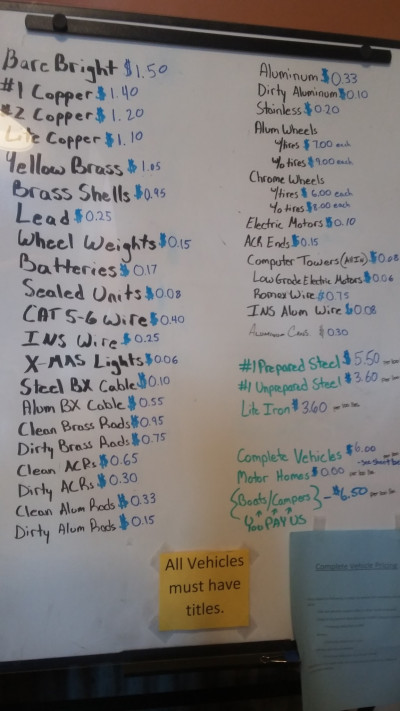 Bare Bright $1.50
#1 Copper $1.40
#2 Copper $1.20
Lite Copper $1.10
Yellow Brass $1.05
Brass Shells $0.95
Lead $0.25
Wheel Weights $0.15
Batteries $0.17
Sealed Units $0.08
CAT 5-6 Wire $0.40
INS Wire $0.25
X-MAS Lights $0.06
Steel BX Cable $0.10
Alum BX Cable $0.55
Clean Brass Rads $0.95
Dirty Brass Rads $0.75
Clean ACRs $0.65
Dirty ACRs $0.30
Clean Alum Rads $0.33
Dirty Alum Rads $0.15
Aluminum $0.33
Dirty Aluminum $0.10
Stainless $0.20
Alum Wheels
w/tires $7.00 each
w/o tires $9.00 each
Chrome Wheels
w/tires $6.00 each
w/o tires $8.00 each
Electric Motors $0.10
ACR Ends $0.15
Computer Towers (All In) $0.08
Low Grade Electric Motors $0.06
Romex Wire $0.75
INS Alum Wire $0.08
Aluminum Cans $0.30
#1 Prepared Steel $5.50
#1 Unprepared Steel $3.60
Lite Iron $3.60
Complete Vehicles $6.00
Motor Homes $0.00
{Boats/Campers} -$6.50
You PAY US
All Vehicles
must have
titles.
Complete Vehicle Pricing